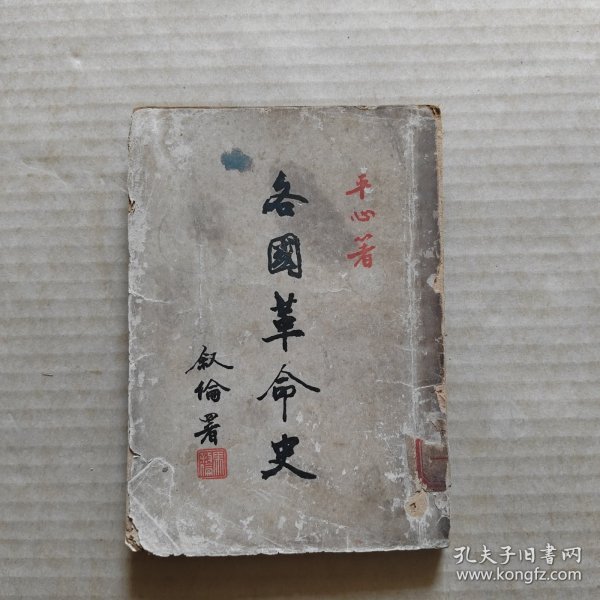 平心著
各國革命史
叙倫署
孔夫子旧書网
www.kongfz.com